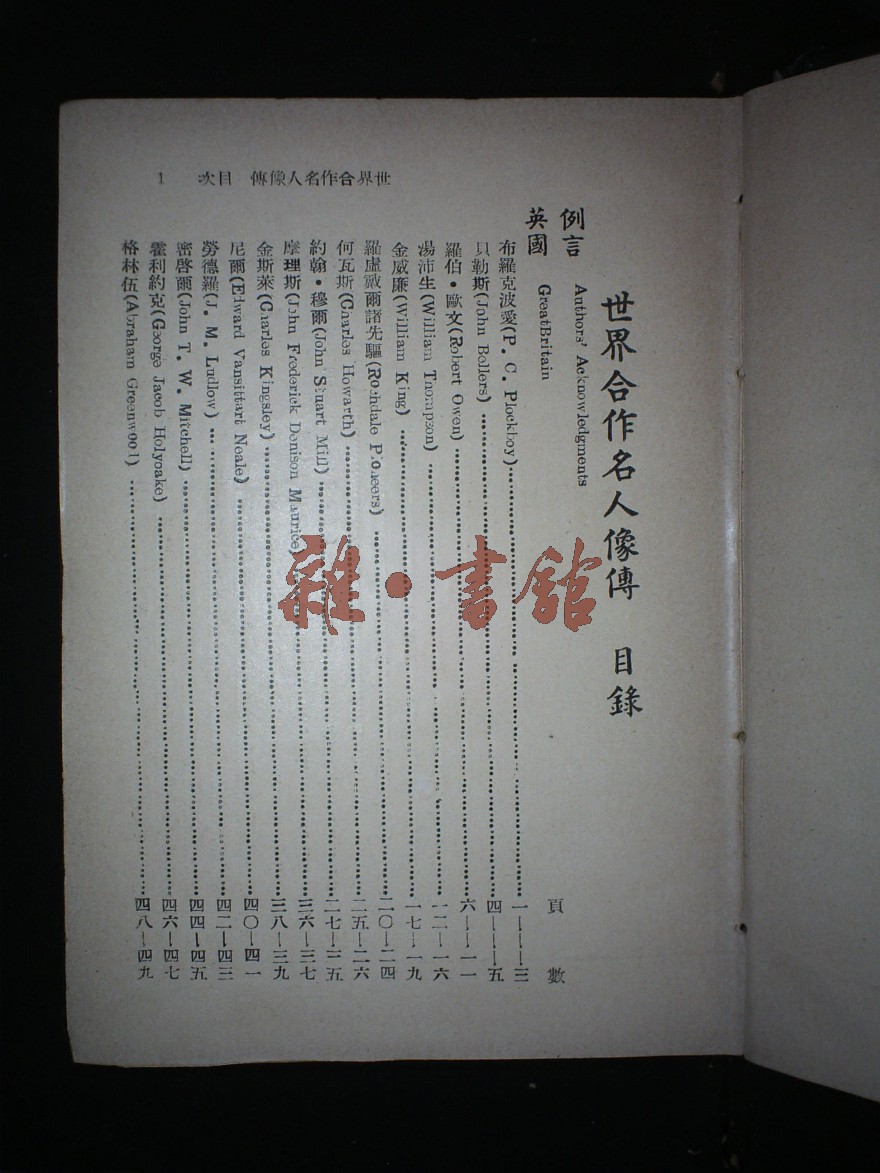 世界合作名人像傳 目錄
例言 Authors' Acknowledgments
英國 GreatBritain 頁數
布羅克波愛(P. C. Plockboy)……一——三
貝勒斯(John Bellers)……四——五
羅伯•歐文(Robert Owen)……六——一一
湯沛生(William Thompson)……一二—一六
金威廉(William King)……一七—一九
羅虛戴爾諸先驅(Rochdale Pioneers)……二〇—二四
何瓦斯(Charles Howarth)……二五—二六
約翰•穆爾(John Stuart Mill)……二七—三五
摩理斯(John Frederick Denison Maurice)……三六—三七
金斯萊(Charles Kingsley)……三八—三九
尼爾(Edward Vansittart Neale)……四〇—四一
勞德羅(J. M. Ludlow)……四二—四三
密啓爾(John T. W. Mitchell)……四四—四五
霍利約克(George Jacob Holyoake)……四六—四七
格林伍(Abraham Greenwood)……四八—四九
世界合作名人像傳 目次 1
雜•書館